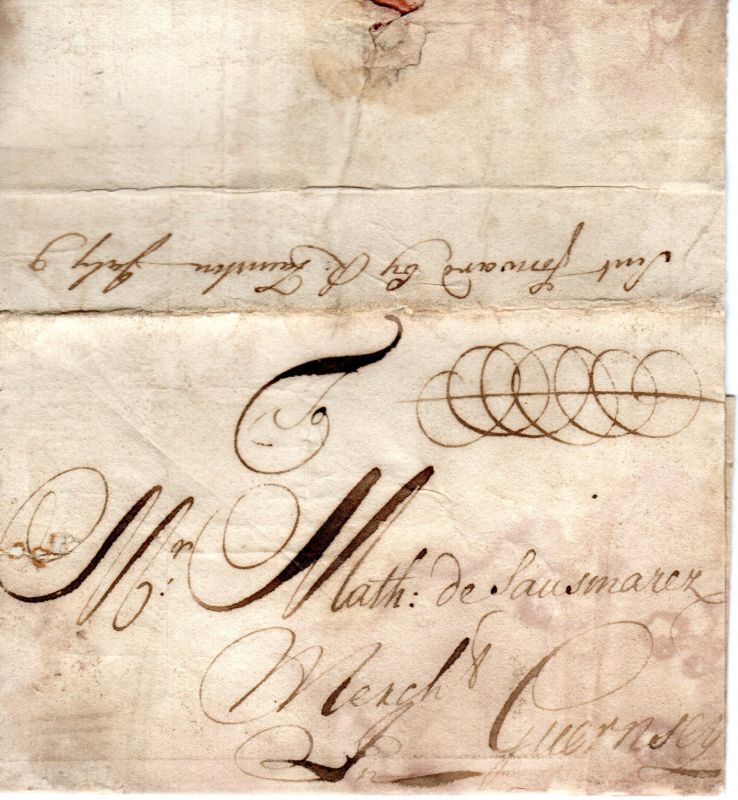 Sent forward by R: July 9
To
Mr: Math: de Sausmarez
Merch.t
In Guernsey